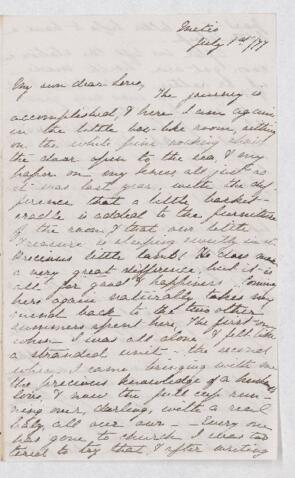 Metis
July 1st/77
My own dear Love,
The journey is
accomplished, & here I am again
in the little box-like room, sitting
on the white pine rocking chair
the door open to the sea, & my
paper on my knees all just as
it was last year, with the dif
ference that a little basket-
cradle is added to the furniture
of the room & that our little
treasure is sleeping sweetly in it
Precious little lamb! He does make
a very great difference but it is
all for good & happiness. Coming
here again naturally takes my
mind back to the two other
summers spent here, The first one
when I was all alone & felt like
a stranded unit - the second
when I came bringing with me
the precious knowledge of a husband's
love, & now the full cup run-
ning over, darling, with a real
baby, all our own - Every one
has gone to church I was too
tired to try that, & after writing